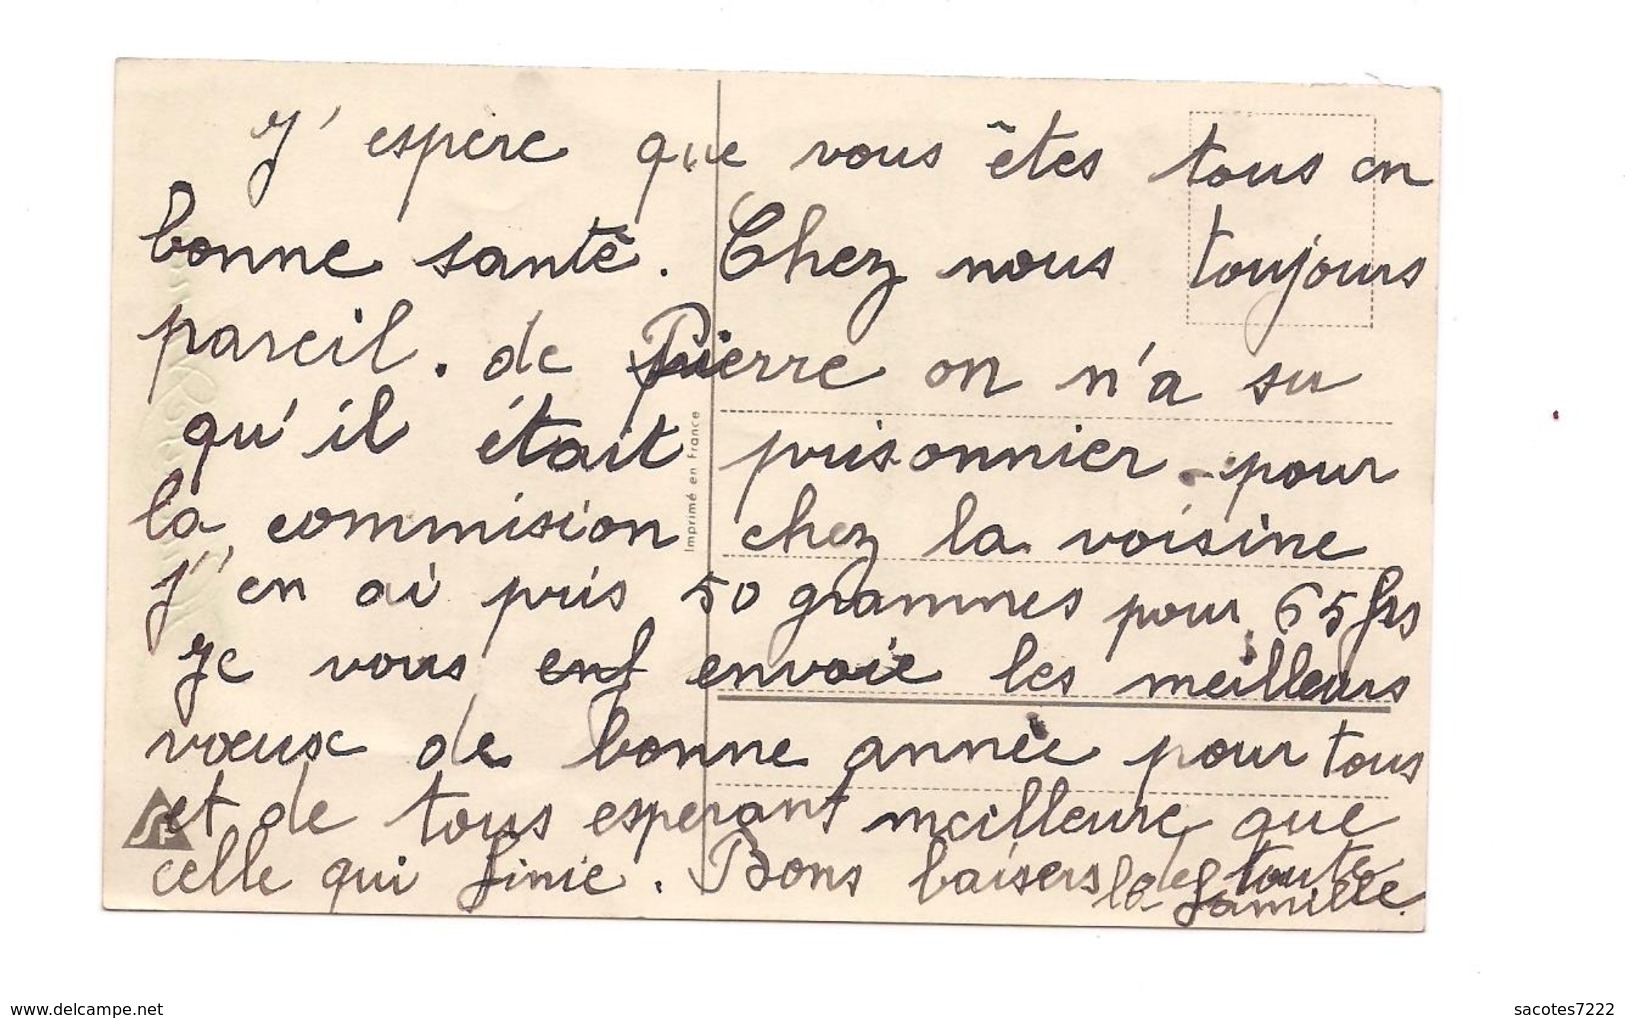 J' espère que vous êtes tous en
bonne santé. Chez nous toujours
pareil. de Pierre on n'a su
qu'il était prisonnier - pour
la commision chez la voisine
j'en ai pris 50 grammes pour 65 frs
Je vous enf envoie les meilleurs
vœux de bonne année pour tous
et de tous esperant meilleure que
celle qui finie. Bons baisers de toute
la famille.
Imprimé en France
www.delcampe.net
sacotes7222